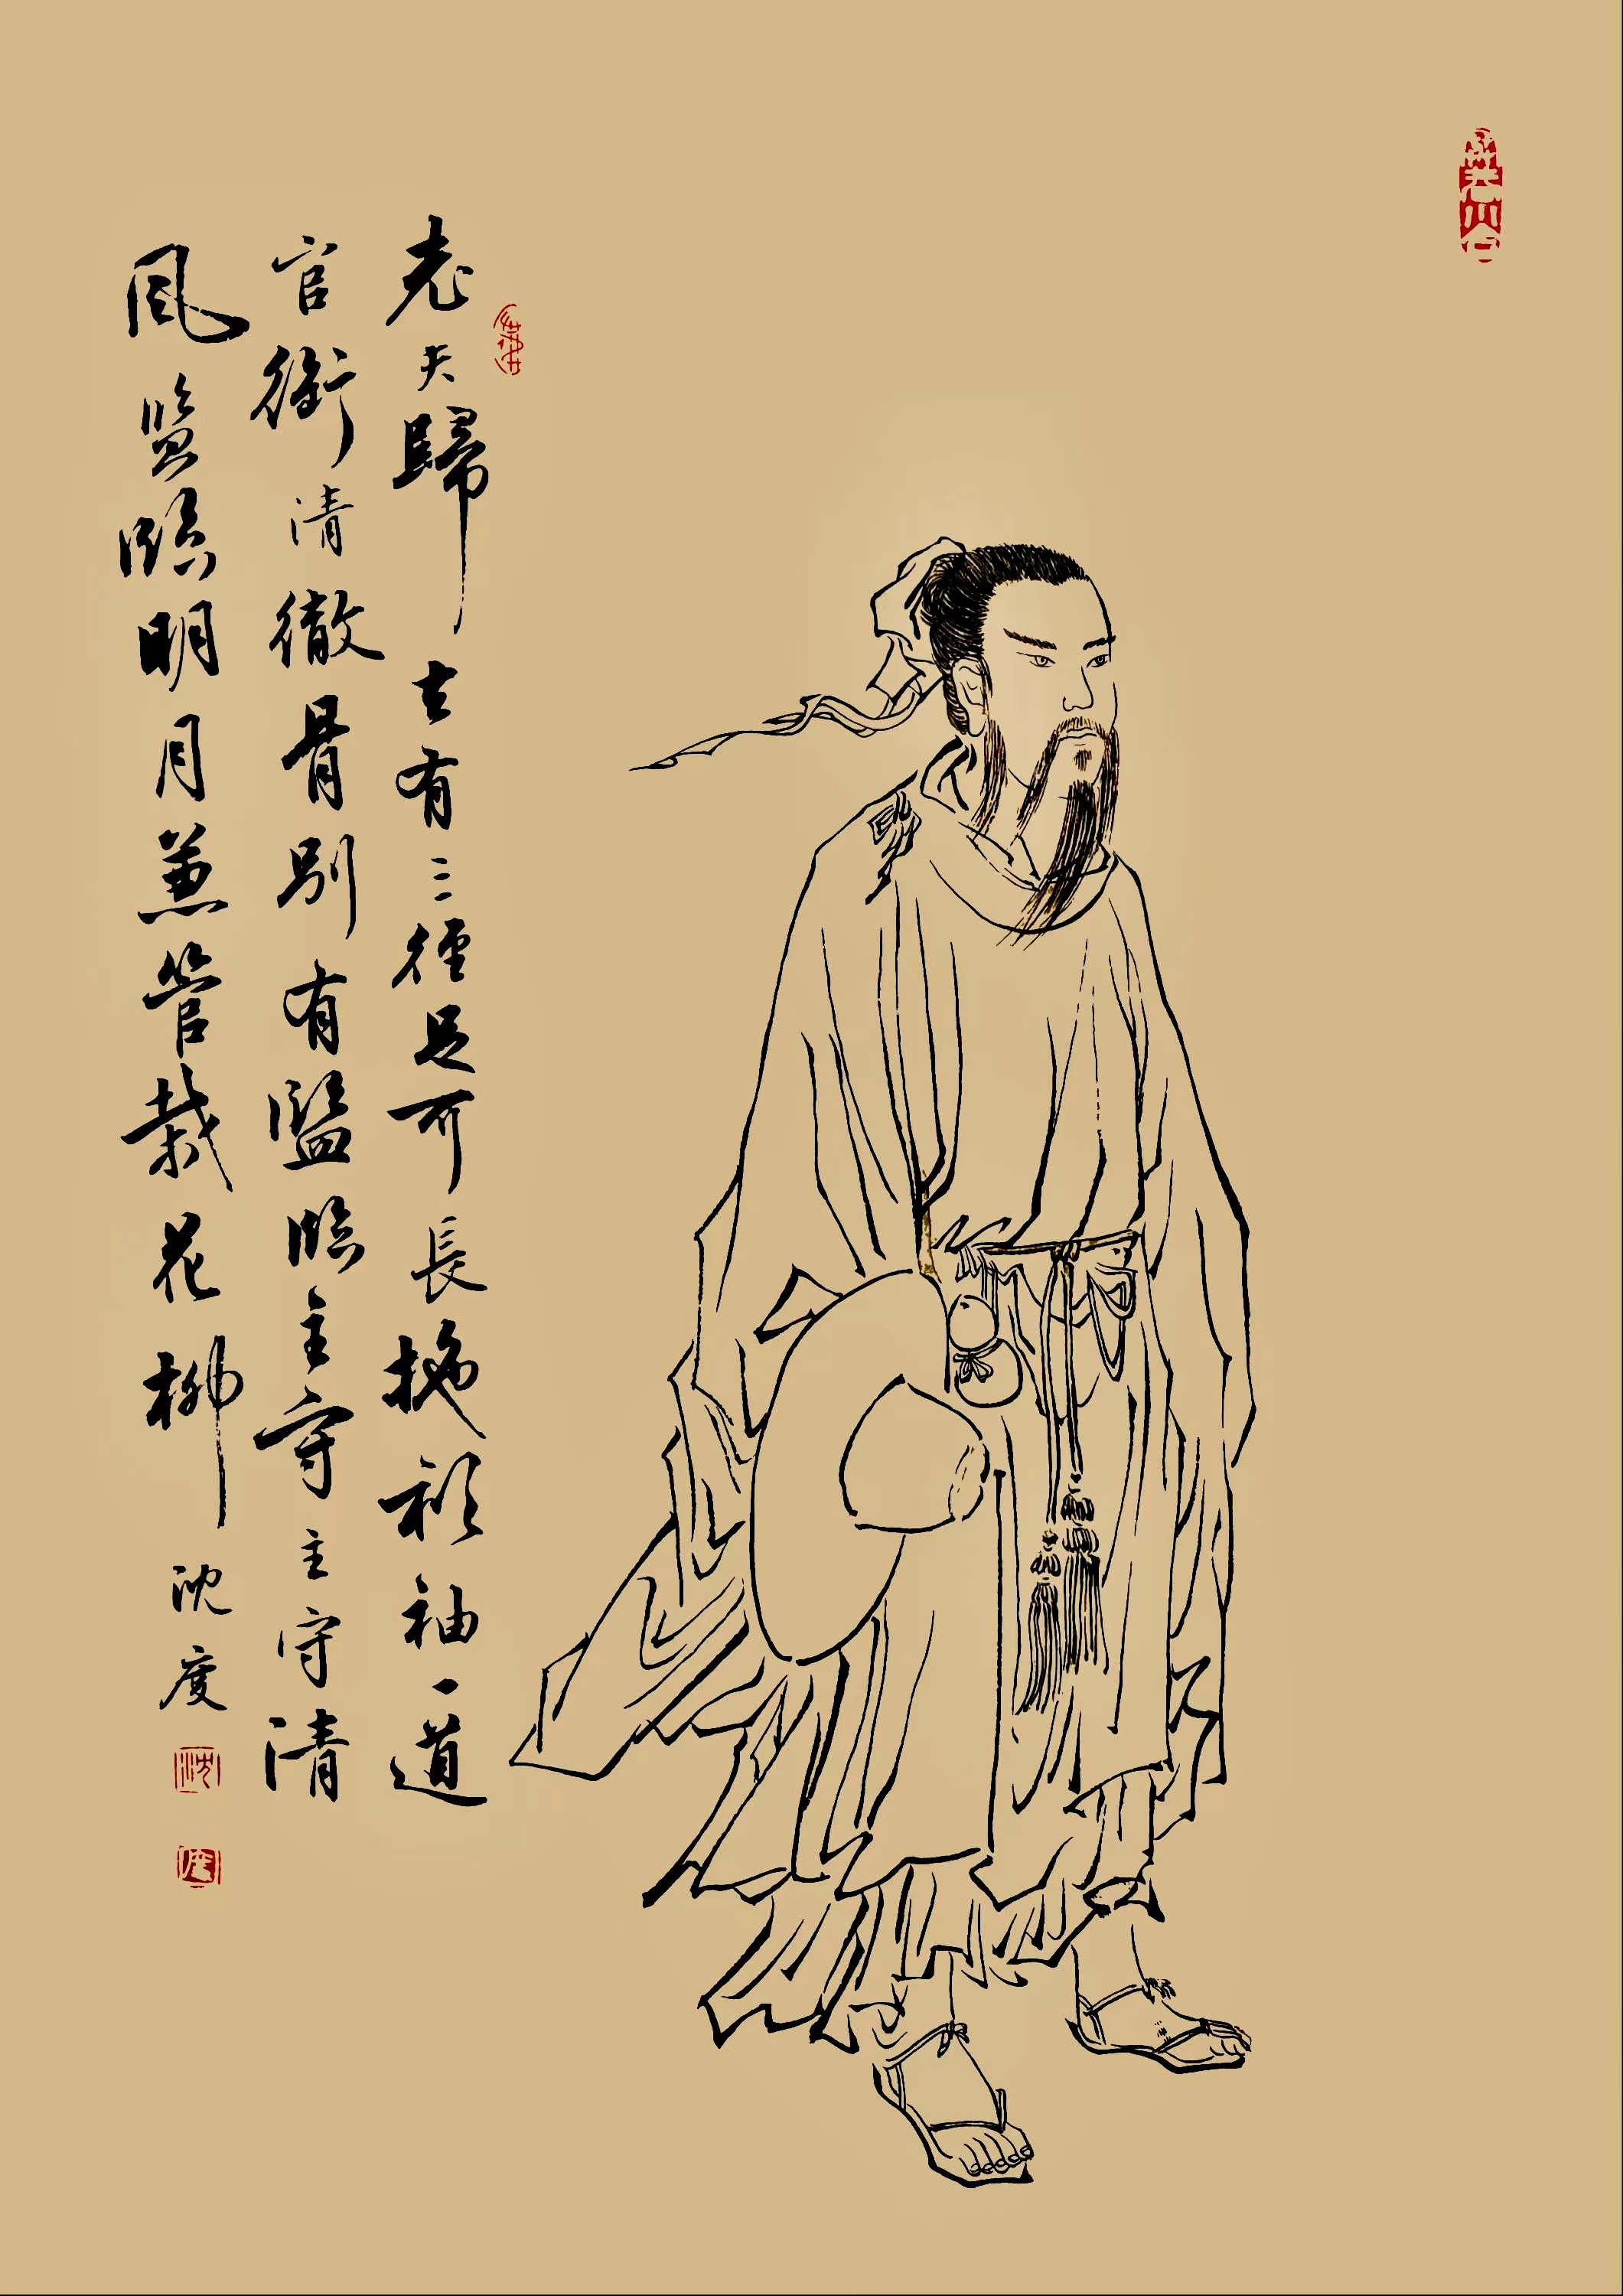 老夫歸去有三徑足可長拖衫袖一道
官銜清徹骨別有監臨主守主守清
風監臨明月兼管栽花柳
沈度
沈
度